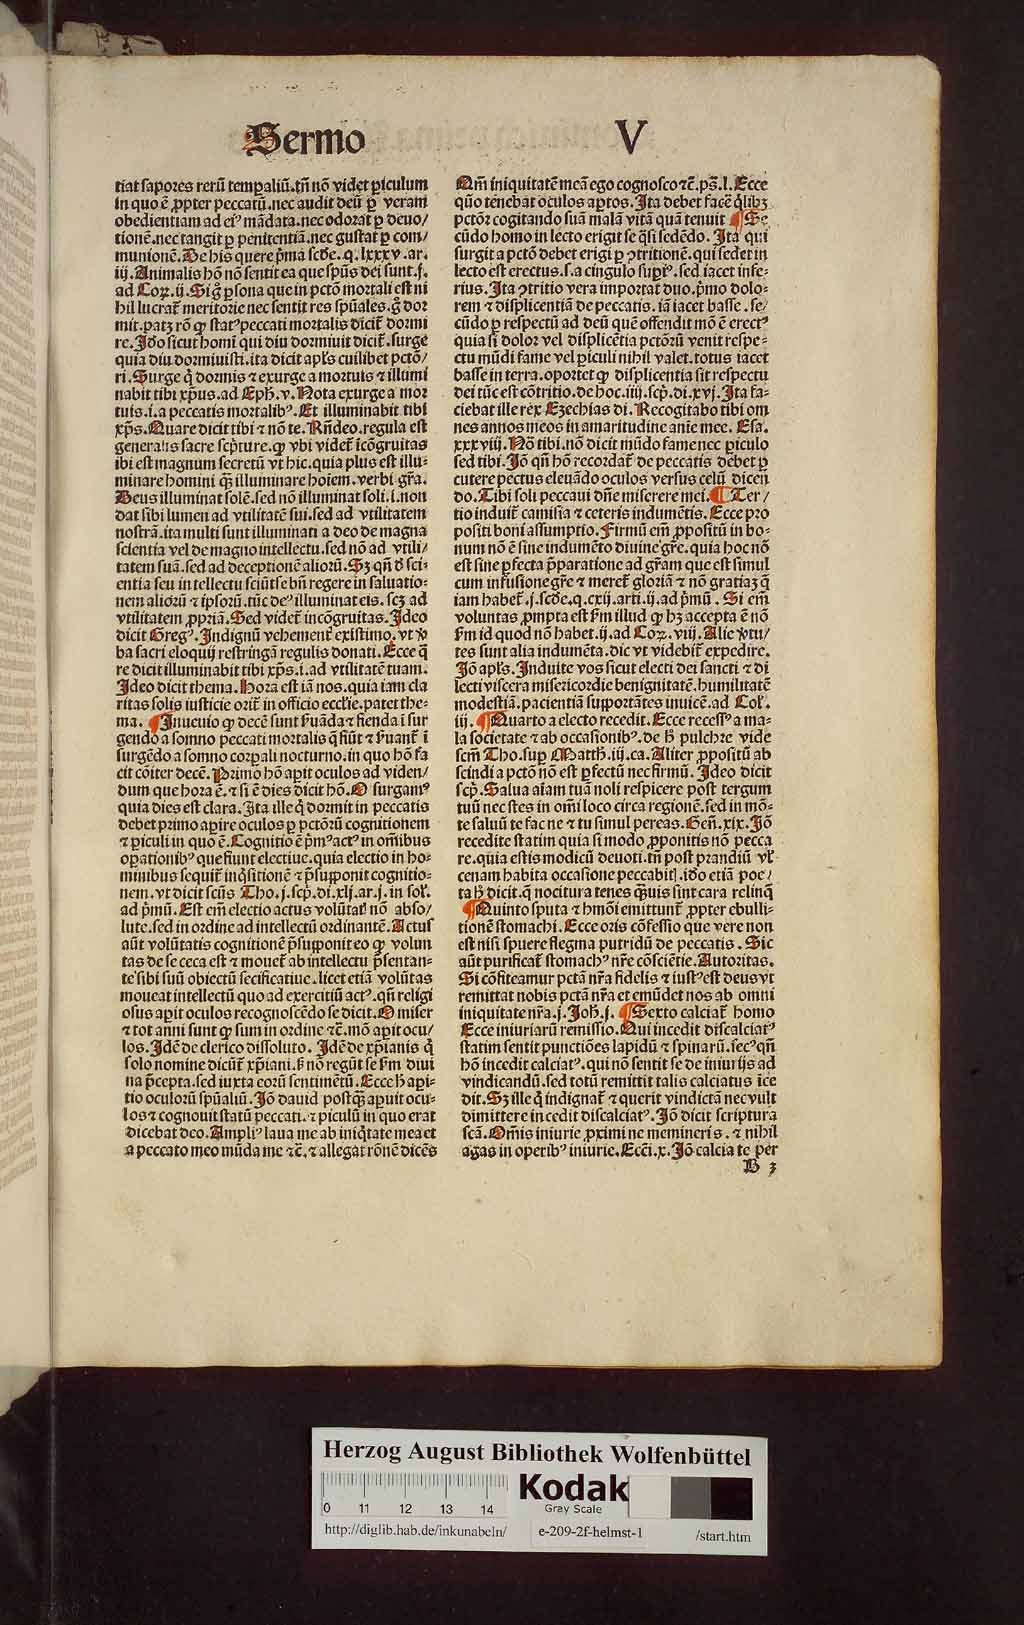 Sermo V
tiat sapores rerū temꝑaliū. tn̄ nō videt ꝑiculum
in quo ē ꝓpter peccatū. nec audit deū ꝑ veram
obedientiam ad eiꝰ mādata. nec odorat ꝑ deuo/
tionē. nec tangit ꝑ penitentiā. nec gustat ꝑ com/
munionē. De his quere p̄ma scd̄e. q. lxxxv. ar.
iij. Animalis hō nō sentit ea que sp̄us dei sunt. j.
ad Coꝝ. ij. Sig̊ ꝑsona que in pctō mortali est ni
hil lucrat̄ meritorie nec sentit res sp̄uales. g̊ dor
mit. patꝫ rō ꝙ statꝰ peccati mortalis dicit̄ dormi
re. Jdo sicut homī qui diu dormiuit dicit̄. surge
quia diu dormiuisti. ita dicit apl̄s cuilibet pctō/
ri. Surge q̇ dormis ⁊ exurge a mortuis ⁊ illumi
nabit tibi xp̄us. ad Eph̄. v. Nota exurge a mor
tuis. i. a peccatis mortalibꝰ. Et illuminabit tibi
xp̄s. Quare dicit tibi ⁊ nō te. Rn̄deo. regula est
generalis sacre scp̄ture. ꝙ vbi videt̄ icōgruitas
ibi est magnum secretū vt hic. quia plus est illu⸗
minare homini q̄ꝫ illuminare hoiem. verbi gr̄a.
Deus illuminat solē. sed nō illuminat soli. i. non
dat sibi lumen ad vtilitatē sui. sed ad vtilitatem
nostrā. ita multi sunt illuminati a deo de magna
scientia vel de magno intellectu. sed nō ad vtili/
tatem suā. sed ad deceptionē aliorū. Sꝫ qn̄ d̄ sci⸗
entia seu intellectu sciūt se bn̄ regere in saluatio⸗
nem aliorū ⁊ ipsorū. tūc deꝰ illuminat eis. scꝫ ad
vtilitatem ꝓpriā. Sed videt̄ incōgruitas. Jdeo
dicit Gregꝰ. Indignū vehement̄ existimo. vt v̄
ba sacri eloquij restringā regulis donati. Ecce q̄
re dicit illuminabit tibi xp̄s. i. ad vtilitatē tuam.
Jdeo dicit thema. Hora est iā nos. quia iam cla
ritas solis iusticie orit̄ in officio eccl̄ie. patet the⸗
ma. ¶ Inueuio ꝙ decē sunt ẜuāda ⁊ fienda ī sur
gendo a somno peccati mortalis q̄ fiūt ⁊ ẜuant̄ ī
surgēdo a somno corꝑali nocturno. in quo hō fa
cit cōiter decē. Primo hō aꝑit oculos ad viden/
dum que hora ē. ⁊ si ē dies dicit hō. O surgamꝰ
quia dies est clara. Ita ille q̇ dormit in peccatis
debet primo aꝑire oculos ꝑ pctōrū cognitionem
⁊ ꝑiculi in quo ē. Cognitio ē p̄mꝰ actꝰ in om̄ibus
oꝑationibꝰ que fiunt electiue. quia electio in ho⸗
minibus sequit̄ inq̇sitionē ⁊ p̄supponit cognitio⸗
nem. vt dicit scūs Tho. j. scp̄. di. xlj. ar. j. in sol̄.
ad p̄mū. Est em̄ electio actus volūtati nō abso/
lute. sed in ordine ad intellectū ordinantē. Actus
aūt volūtatis cognitionē p̄supponit eo ꝙ volun
tas de se ceca est ⁊ mouet̄ ab intellectu p̄sentan⸗
te sibi suū obiectū specificatiue. licet etiā volūtas
moueat intellectū quo ad exercitiū actꝰ. qn̄ religi
osus aꝑit oculos recognoscēdo se dicit. O miser
⁊ tot anni sunt ꝙ sum in ordine ⁊c̄. mō aꝑit ocu/
los. Idē de clerico dissoluto. Idē de xp̄ianis q̇
solo nomine dicūt̄ xp̄iani. ẜ nō regūt se ẜm diui
na p̄cepta. sed iuxta eorū sentimētū. Ecce h̄ aꝑi⸗
tio oculorū sp̄ualiū. Jō dauid postq̄ꝫ aꝑuit ocu⸗
los ⁊ cognouit statū peccati. ⁊ ꝑiculū in quo erat
dicebat deo. Ampliꝰ laua me ab iniq̇tate mea et
a peccato meo mūda me ⁊c̄. ⁊ allegat rōnē dicēs
Qm̄ iniquitatē meā ego cognosco ⁊c̄. ps̄. l. Ecce
quō tenebat oculos aꝑtos. Ita debet facē q̇libꝫ
pctōr cogitando suā malā vitā quā tenuit ¶ Se
cūdo homo in lecto erigit se q̄si sedēdo. Ita qui
surgit a pctō debet erigi ꝑ ꝯtritionē. qui sedet in
lecto est erectus. s. a cingulo supꝰ. sed iacet infe⸗
rius. Ita ꝯtritio vera importat duo. p̄mo dolo⸗
rem ⁊ displicentiā de peccatis. iā iacet basse. se/
cūdo ꝑ respectū ad deū quē offendit mō ē erectꝰ
quia si dolor vel displicētia pctōrū venit respe⸗
ctu mūdi fame vel ꝑiculi nihil valet. totus iacet
basse in terra. oportet ꝙ displicentia sit respectu
dei tūc est cōtritio. de hoc. iiij. scp̄. di. xvj. Ita fa⸗
ciebat ille rex Ezechias di. Recogitabo tibi om
nes annos meos in amaritudine aīe mee. Esa.
xxxviij. Nō tibi. nō dicit mūdo fame nec ꝑiculo
sed tibi. Jō qn̄ hō recordat̄ de peccatis debet ꝑ
cutere pectus eleuādo oculos versus celū dicen
do. Tibi soli peccaui dn̄e miserere mei. ¶ Ter/
tio induit̄ camisia ⁊ ceteris indumētis. Ecce pro
positi boni assumptio. Firmū em̄ ꝓpositū in bo⸗
num nō ē sine indumēto diuine gr̄e. quia hoc nō
est sine ꝑfecta p̄paratione ad gr̄am que est simul
cum infusione gr̄e ⁊ meret̄ gloriā ⁊ nō gratiaꝫ q̄
iam habet̄. j. scd̄e. q. cxij. arti. ij. ad p̄mū. Si em̄
voluntas ꝓmpta est ẜm illud ꝙ hꝫ accepta ē nō
ẜm id quod nō habet. ij. ad Coꝝ. viij. Alie v̄tu/
tes sunt alia indumēta. dic vt videbit̄ expedire.
Jō apl̄s. Induite vos sicut electi dei sancti ⁊ di
lecti viscera misericordie benignitatē. humilitatē
modestiā. pacientiā supportātes inuicē. ad Col̄.
iij. ¶ Quarto a electo recedit. Ecce recessꝰ a ma⸗
la societate ⁊ ab occasionibꝰ. de h̄ pulchre vide
scm̄ Tho. suꝑ Matth̄. iij. ca. Aliter ꝓpositū ab
scindi a pctō nō est ꝑfectū nec firmū. Ideo dicit
scp̄. Salua aīam tuā noli respicere post tergum
tuū nec stes in om̄i loco circa regionē. sed in mō⸗
te saluū te fac ne ⁊ tu simul pereas. Gen̄. xix. Jō
recedite statim quia si modo ꝓponitis nō pecca
re. quia estis modicū deuoti. tn̄ post prandiū vl̄
cenam habita occasione peccabitꝭ. ido etiā poe/
ta h̄ dicit. q̄ nocitura tenes q̄ꝫuis sint cara relinq̄
¶ Quinto sputa ⁊ hmōi emittunt̄ ꝓpter ebulli⸗
tionē stomachi. Ecce oris cōfessio que vere non
est nisi spuere flegma putridū de peccatis. Sic
aūt purificat̄ stomachꝰ nr̄e cōsciētie. Autoritas.
Si cōfiteamur pctā nr̄a fidelis ⁊ iustꝰ est deus vt
remittat nobis pctā nr̄a et emūdet nos ab omni
iniquitate nr̄a. j. Joh̄. j. ¶ Sexto calciat̄ homo
Ecce iniuriarū remissio. Qui incedit discalciatꝰ
statim sentit punctiōes lapidū ⁊ spinarū. secꝰ qn̄
hō incedit calciatꝰ. qui nō sentit se de iniurijs ad
vindicandū. sed totū remittit talis calciatus īce
dit. Sꝫ ille q̇ indignat̄ ⁊ querit vindictā nec vult
dimittere incedit discalciatꝰ. Jō dicit scriptura
scā. Om̄is iniurie ꝓximi ne memineris. ⁊ nihil
agas in operibꝰ iniurie. Ecc̄i. x. Jō calcia te per
B 3
Herzog August Bibliothek Wolfenbüttel
0 11 12 13 14
Kodak
Gray Scale
http://diglib.hab.de/inkunabeln/ e-209-2f-helmst-1 /start.htm